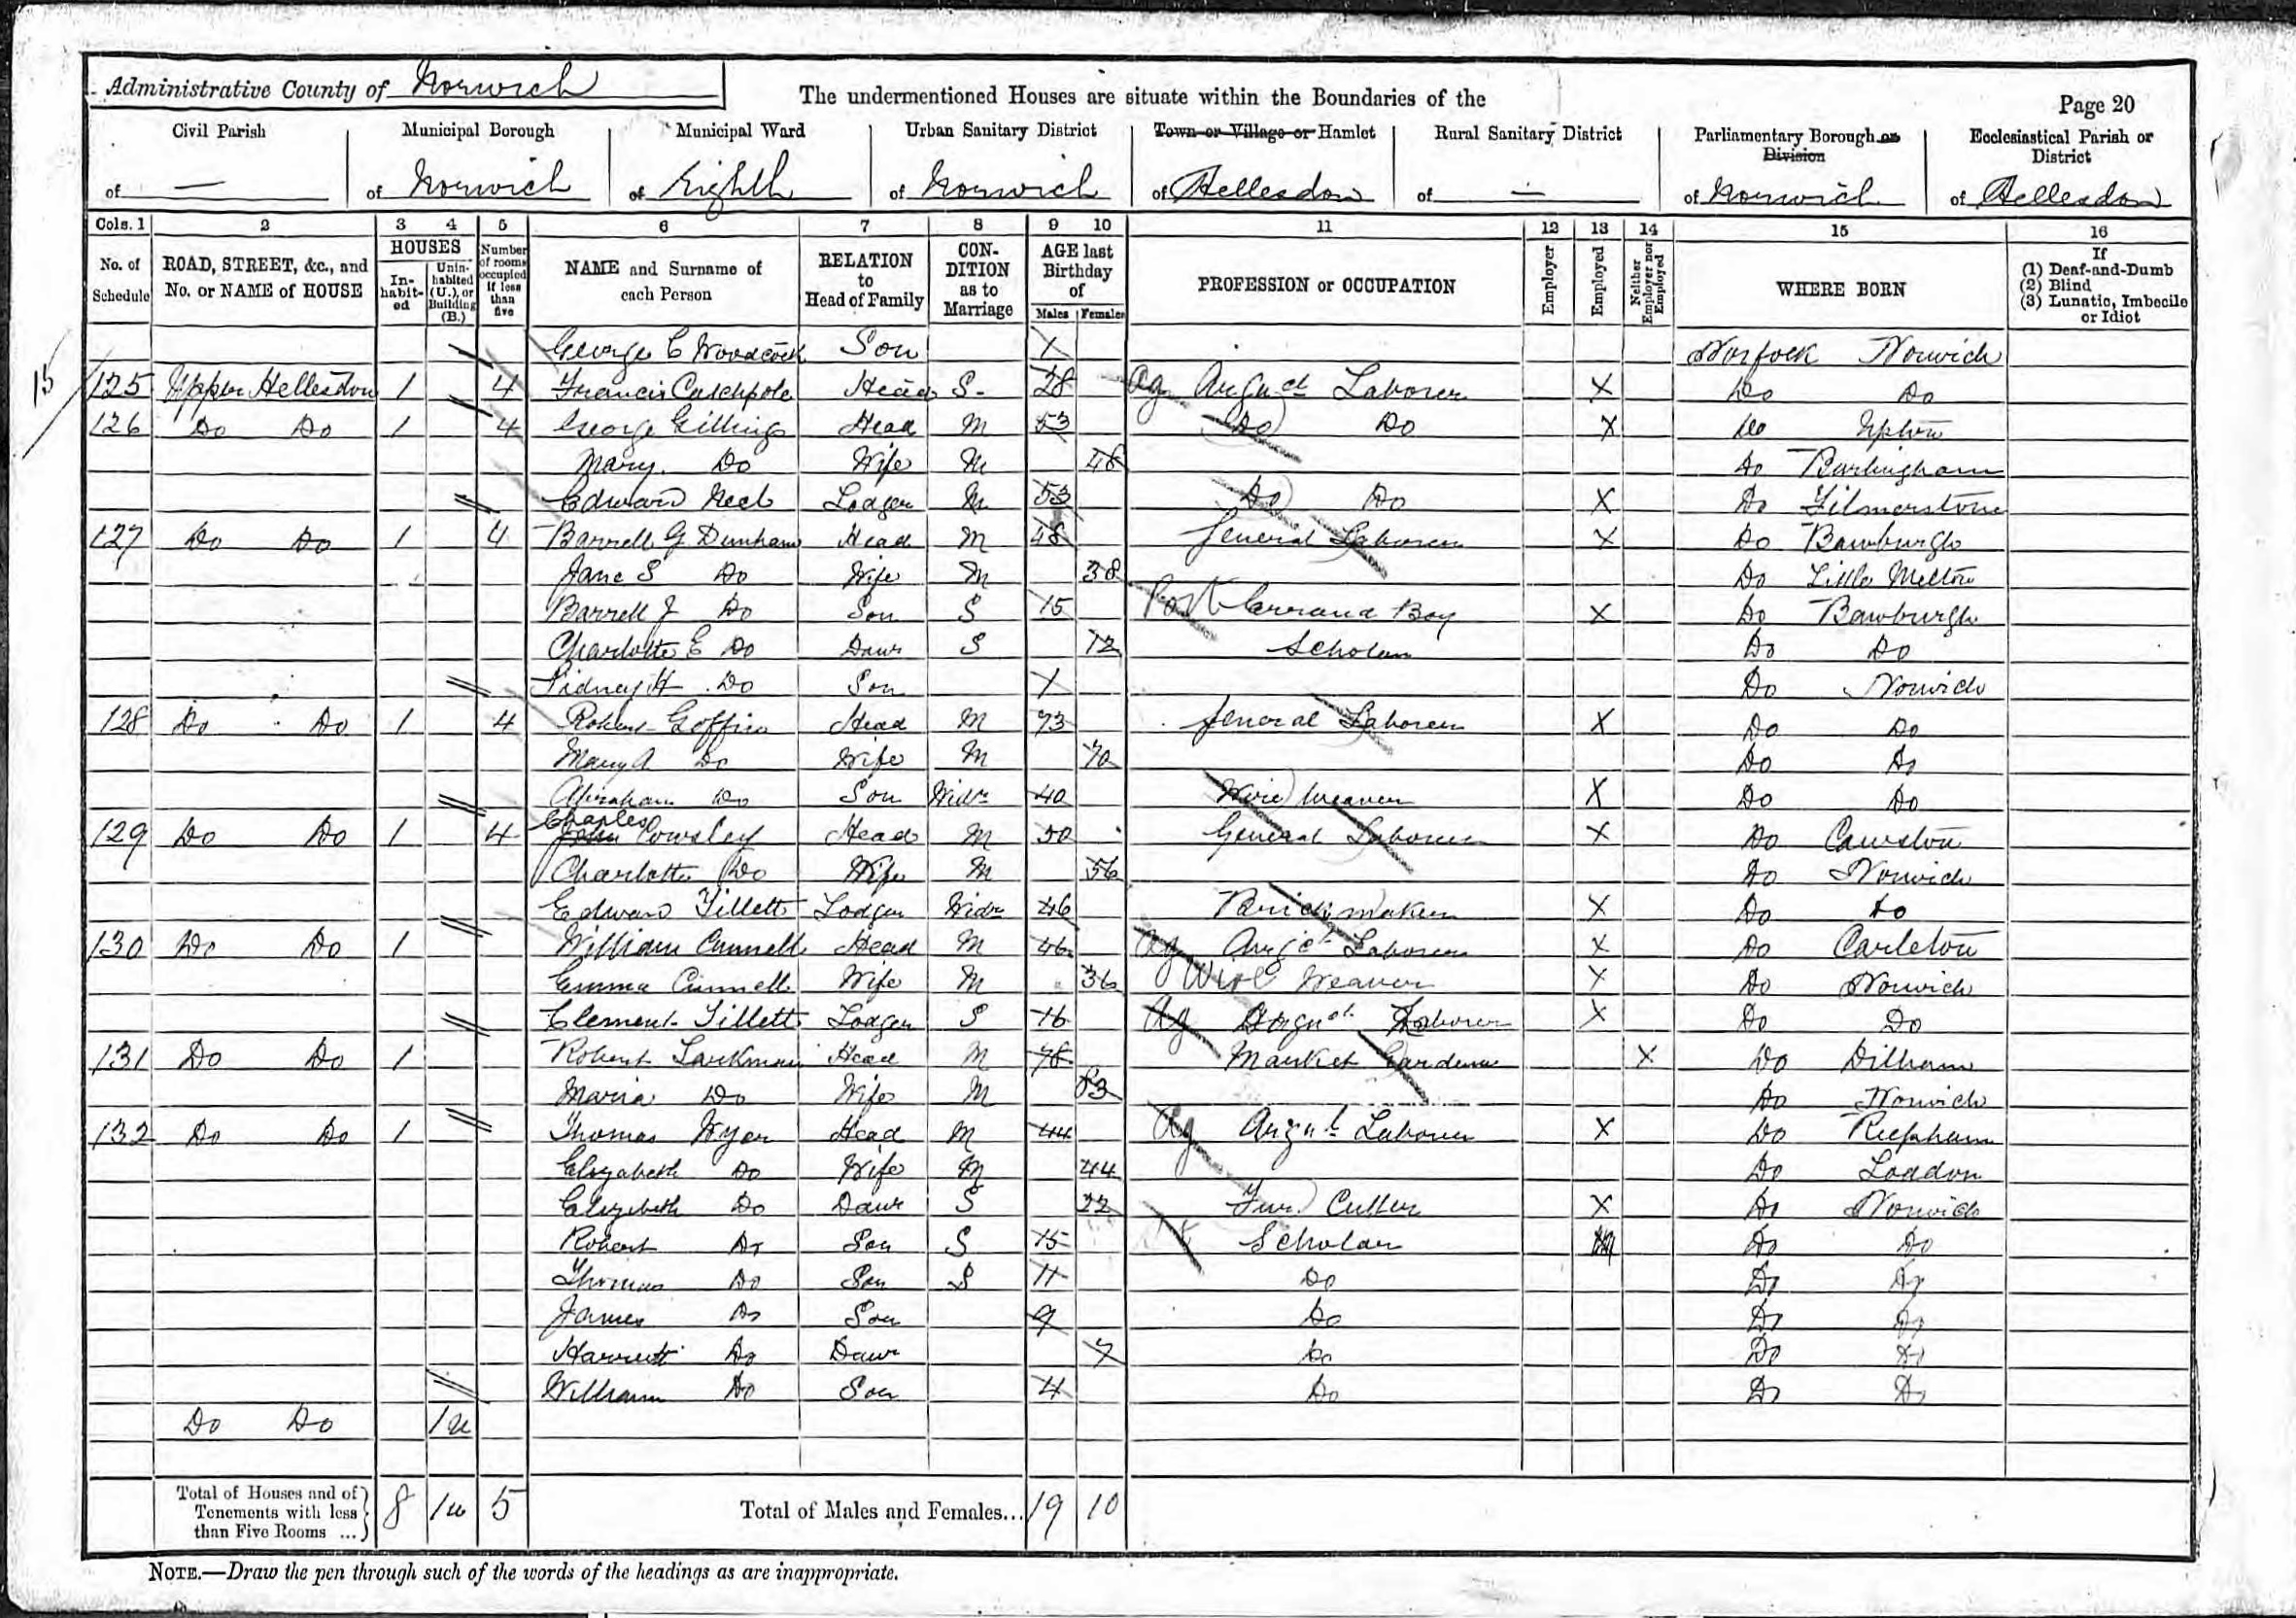 Administrative County of Norwich
The undermentioned Houses are situate within the Boundaries of the
Page 20
Civil Parish of —
Municipal Borough of Norwich
Municipal Ward of Eighth
Urban Sanitary District of Norwich
Town or Village or Hamlet of Hellesdon
Rural Sanitary District of —
Parliamentary Borough or Division of Norwich
Ecclesiastical Parish or District of Hellesdon
Cols. 1 2 3 4 5 6 7 8 9 10 11 12 13 14 15 16
No. of Schedule
ROAD, STREET, &c., and No. or NAME of HOUSE
HOUSES
In-habit-ed
Unin-habited (U.), or Building (B.)
Number of rooms occupied if less than five
NAME and Surname of each Person
RELATION to Head of Family
CON-DITION as to Marriage
AGE last Birthday of
Males Females
PROFESSION or OCCUPATION
Employer
Employed
Neither Employer nor Employed
WHERE BORN
If (1) Deaf-and-Dumb (2) Blind (3) Lunatic, Imbecile or Idiot
15
George C Woodcock Son 1 Norfolk Norwich
125 Upper Hellesdon 1 4 Francis Catchpole Head S 28 Ag Labourer X Do Do
126 Do Do 1 4 George Gillings Head M 53 Do Do X Do Upton
Mary Do Wife M 48 Do Burlingham
Edward Lodger M 53 Do Do X Do
127 Do Do 1 4 Barrell G Dunham Head M 48 General Laborer X Do Bawburgh
Jane S Do Wife M 38 Do Little Melton
Barrell J Do Son S 15 Errand Boy X Do Bawburgh
Charlotte E Do Daur S 12 Scholar Do Do
Sidney H Do Son 1 Do Norwich
128 Do Do 1 4 Robert Goffin Head M 73 General Laborer X Do Do
Mary A Do Wife M 70 Do Do
Abraham Do Son Widr 40 Wire Weaver X Do Do
129 Do Do 1 4 Charles John Cowsley Head M 50 General Laborer X Do Cawston
Charlotte Do Wife M 56 Do Norwich
Edward Tillett Lodger Widr 46 Brick maker X Do Do
130 Do Do 1 William Cunnell Head M 46 Ag Laborer X Do Carleton
Emma Cunnell Wife M 36 Wire Weaver X Do Norwich
Clement Tillett Lodger S 16 Ag Laborer X Do Do
131 Do Do 1 Robert Larkman Head M 78 Market Gardener X Do Dilham
Maria Do Wife M 63 Do Norwich
132 Do Do 1 Thomas Wyer Head M 44 Ag Laborer X Do Reepham
Elizabeth Do Wife M 44 Do Loddon
Elizabeth Do Daur S 22 Fur Cutter X Do Norwich
Robert Do Son S 15 Scholar Do Do
Thomas Do Son S 11 Do Do Do
James Do Son 9 Do Do Do
Harriett Do Daur 7 Do Do Do
William Do Son 4 Do Do Do
Do Do 1u
Total of Houses and of Tenements with less than Five Rooms ... 8 1u 5
Total of Males and Females... 19 10
NOTE.—Draw the pen through such of the words of the headings as are inappropriate.